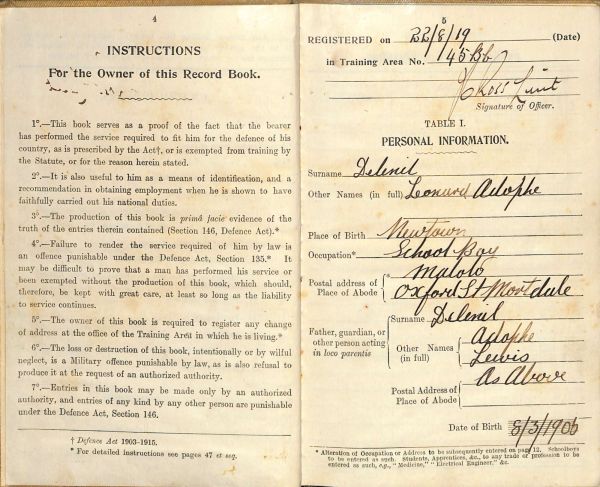 4
INSTRUCTIONS
For the Owner of this Record Book.
1°.—This book serves as a proof of the fact that the bearer
has performed the service required to fit him for the defence of his
country, as is prescribed by the Act†, or is exempted from training by
the Statute, or for the reason herein stated.
2°.—It is also useful to him as a means of identification, and a
recommendation in obtaining employment when he is shown to have
faithfully carried out his national duties.
3°.—The production of this book is primâ facie evidence of the
truth of the entries therein contained (Section 146, Defence Act).*
4°.—Failure to render the service required of him by law is
an offence punishable under the Defence Act, Section 135.* It
may be difficult to prove that a man has performed his service or
been exempted without the production of this book, which should,
therefore, be kept with great care, at least so long as the liability
to service continues.
5°.—The owner of this book is required to register any change
of address at the office of the Training Area in which he is living.*
6°.—The loss or destruction of this book, intentionally or by wilful
neglect, is a Military offence punishable by law, as is also refusal to
produce it at the request of an authorized authority.
7°.—Entries in this book may be made only by an authorized
authority, and entries of any kind by any other person are punishable
under the Defence Act, Section 146.
† Defence Act 1903-1915.
* For detailed instructions see pages 47 et seq.
5
REGISTERED on 22/8/19 (Date)
in Training Area No. 145B
Ross Lieut
Signature of Officer.
TABLE I.
PERSONAL INFORMATION.
Surname Delenil
Other Names (in full) Leonard Adophe
Place of Birth Newtown
Occupation* School Boy
Postal address of Place of Abode Maloto
Oxford St Mortdale
Father, guardian, or other person acting in loco parentis
Surname Delenil
Other Names (in full) Adophe
Lewis
Postal Address of Place of Abode As Above
Date of Birth 8/3/1905
* Alteration of Occupation or Address to be subsequently entered on page 12. Schoolboys
to be entered as such. Students, Apprentices, &c., to any trade or profession to be
entered as such, e.g., "Medicine," "Electrical Engineer," &c.